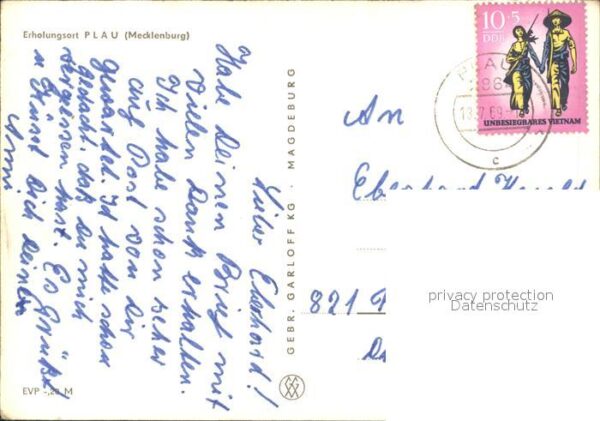 Erholungsort PLAU (Mecklenburg)
Lieber Eberhard!
Habe Deinen Brief mit
vielen Dank erhalten.
Ich habe schon sehr
auf Post von Dir
gewartet. Ich hatte schon
gedacht, daß du mich
vergessen hast. Es Grüßt
u Grüsst Dich Deine
Anni
EVP -,20 M
GEBR. GARLOFF KG · MAGDEBURG
10+5
DDR
UNBESIEGBARES VIETNAM
PLAU
c
An
Eberhard
821
privacy protection
Datenschutz